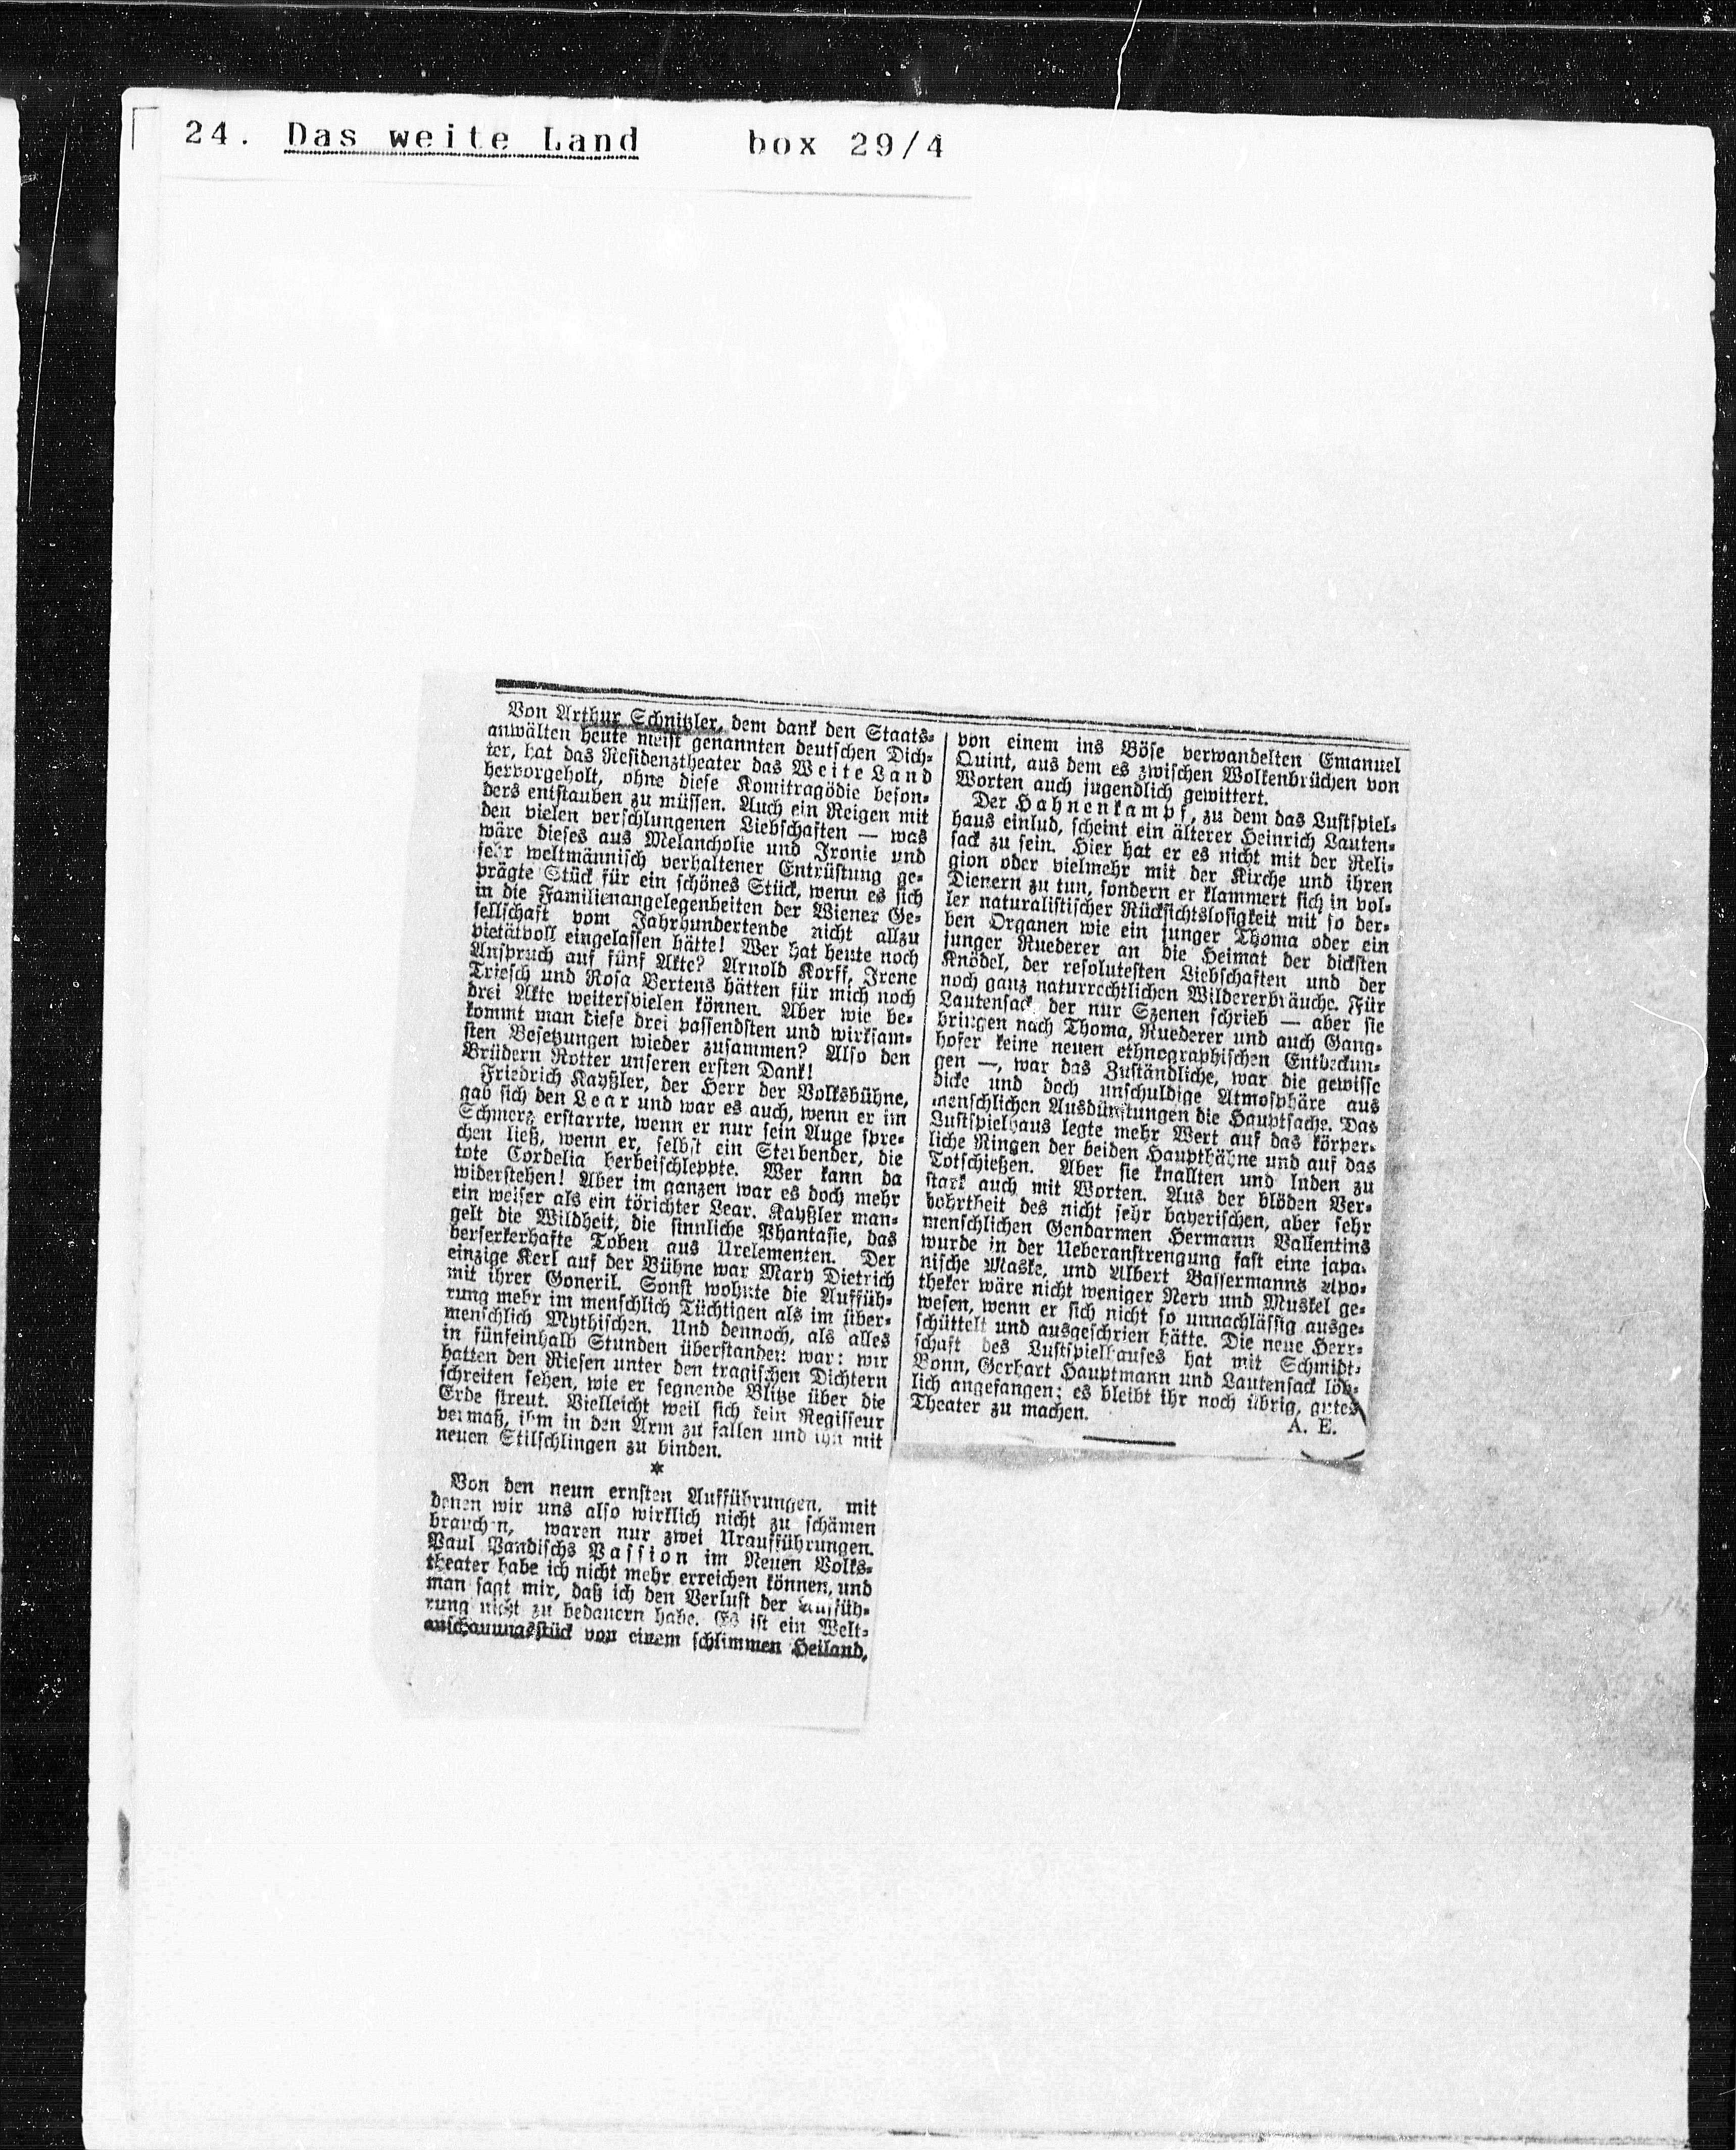 24. Das weite Land box 29/4
Von Arthur Schnitzler, dem dank den Staats-
anwälten heute meist genannten deutschen Dich-
ter, hat das Residenztheater das Weite Land
hervorgeholt, ohne diese Komitragödie beson-
ders entstauben zu müssen. Auch ein Reigen mit
den vielen verschlungenen Liebschaften — was
wäre dieses aus Melancholie und Ironie und
sehr weltmännisch verhaltener Entrüstung ge-
prägte Stück für ein schönes Stück, wenn es sich
in die Familienangelegenheiten der Wiener Ge-
sellschaft vom Jahrhundertende nicht allzu
pietätvoll eingelassen hätte! Wer hat heute noch
Anspruch auf fünf Akte? Arnold Korff, Irene
Triesch und Rosa Bertens hätten für mich noch
drei Akte weiterspielen können. Aber wie be-
kommt man diese drei passendsten und wirksam-
sten Besetzungen wieder zusammen? Also den
Brüdern Rotter unseren ersten Dank!
Friedrich Kayßler, der Herr der Volksbühne,
gab sich den Lear und war es auch, wenn er im
Schmerz erstarrte, wenn er nur sein Auge spre-
chen ließ, wenn er, selbst ein Sterbender, die
tote Cordelia herbeischleppte. Wer kann da
widerstehen! Aber im ganzen war es doch mehr
ein weiser als ein törichter Lear. Kayßler man-
gelt die Wildheit, die sinnliche Phantasie, das
berserkerhafte Toben aus Urelementen. Der
einzige Kerl auf der Bühne war Mary Dietrich
mit ihrer Goneril. Sonst wohnte die Auffüh-
rung mehr im menschlich Tüchtigen als im über-
menschlich Mythischen. Und dennoch, als alles
in fünfeinhalb Stunden überstanden war: wir
hatten den Riesen unter den tragischen Dichtern
schreiten sehen, wie er segnende Blitze über die
Erde streut. Vielleicht weil sich kein Regisseur
vermaß, ihm in den Arm zu fallen und ihn mit
neuen Stilschlingen zu binden.
*
Von den neun ernsten Aufführungen, mit
denen wir uns also wirklich nicht zu schämen
brauchen, waren nur zwei Uraufführungen.
Paul Bandischs Passion im Neuen Volks-
theater habe ich nicht mehr erreichen können, und
man sagt mir, daß ich den Verlust der Auffüh-
rung nicht zu bedauern habe. Es ist ein Welt-
anschauungsstück von einem schlimmen Heiland,
von einem ins Böse verwandelten Emanuel
Quint, aus dem es zwischen Wolkenbrüchen von
Worten auch jugendlich gewittert.
Der Hahnenkampf, zu dem das Lustspiel-
haus einlud, scheint ein älterer Heinrich Lauten-
sack zu sein. Hier hat er es nicht mit der Reli-
gion oder vielmehr mit der Kirche und ihren
Dienern zu tun, sondern er klammert sich in vol-
ler naturalistischer Rücksichtslosigkeit mit so der-
ben Organen wie ein junger Thoma oder ein
junger Ruederer an die Heimat der dicksten
Knödel, der resolutesten Liebschaften und der
noch ganz naturrechtlichen Wildererbräuche. Für
Lautensack der nur Szenen schrieb — aber sie
bringen nach Thoma, Ruederer und auch Gang-
hofer keine neuen ethnographischen Entdeckun-
gen —, war das Zuständliche, war die gewisse
dicke und doch unschuldige Atmosphäre aus
menschlichen Ausdünstungen die Hauptsache. Das
Lustspielhaus legte mehr Wert auf das körper-
liche Ringen der beiden Haupthähne und auf das
Totschießen. Aber sie knallten und luden zu
stark auch mit Worten. Aus der blöden Ver-
bohrtheit des nicht sehr bayerischen, aber sehr
menschlichen Gendarmen Hermann Vallentins
wurde in der Ueberanstrengung fast eine japa-
nische Maske, und Albert Bassermanns Apo-
theker wäre nicht weniger Nerv und Muskel ge-
wesen, wenn er sich nicht so unnachlässig ausge-
schüttelt und ausgeschrien hätte. Die neue Herr-
schaft des Lustspielhauses hat mit Schmidt-
Bonn, Gerhart Hauptmann und Lautensack löb-
lich angefangen; es bleibt ihr noch übrig, gutes
Theater zu machen.
A. E.